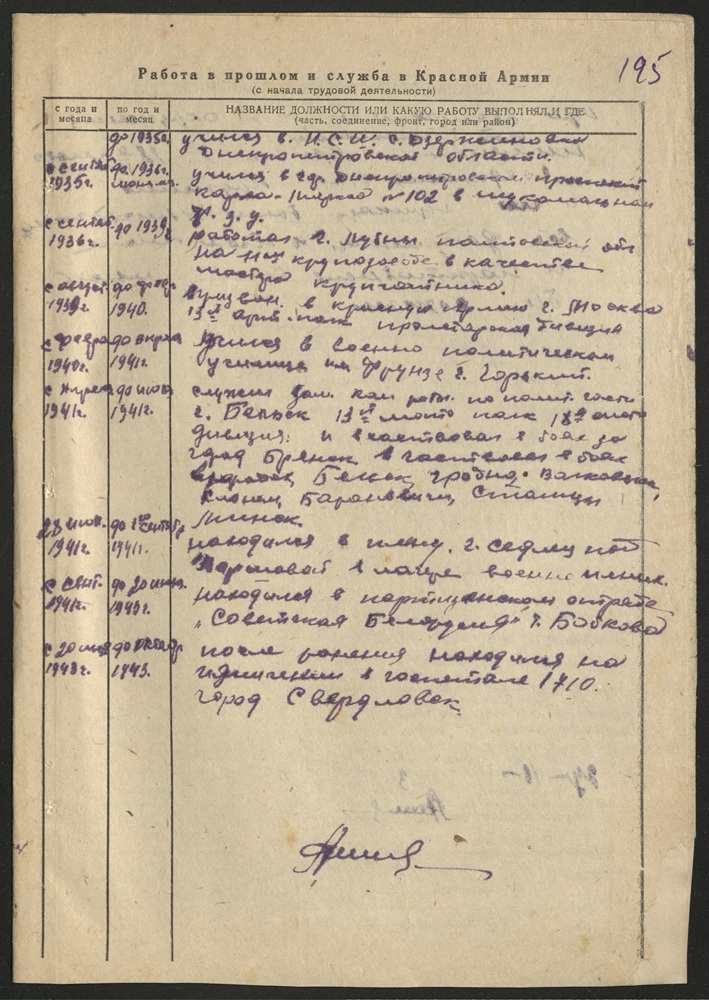 195
Работа в прошлом и служба в Красной Армии
(с начала трудовой деятельности)
с года и месяца
по год и месяц
НАЗВАНИЕ ДОЛЖНОСТИ ИЛИ КАКУЮ РАБОТУ ВЫПОЛНЯЛ И ГДЕ
(часть, соединение, фронт, город или район)
до 1935г. учился в Н.С.Ш. с.
Днепропетровской области.
с сентяб. 1935г. до 1936г. учился в гор. Днепропетровске проспект
Карла-Маркса №102 в
с сентяб. 1936г. до 1939г.
работал г. Лубны полтавской обл
на крупозаводе в качестве
мастера
с август 1939г. до февр. 1940. призван. в красную армию г. Москва
13й арт. полк пролетарская дивизия
с февра 1940г. до апреля 1941г. учился в военно политическом
училище им Фрунзе г. Горький.
с апреля 1941г. до июня 1941г. служил зам. ком роты. по полит. части
г. Бельск 13й мото полк
дивизия. и участвовал в боях за
город Брянск участвовал в боях
городов Бельск, гродно. Волковыск,
Слоним, Барановичи, Столпцы
Минск.
28 июн. 1941г. до 1941г. находился в плену. г. Седлец под
Варшавой в лагере военно пленн.
с сент. 1941г. до 20 июня. 1943г. находился в партизанском отряде
„Советская Белоруссия" т. Бобкова
с 20 июня 1943г. до октябр 1943. после ранения находился на
излечении в госпитале 1710.
город Свердловск.